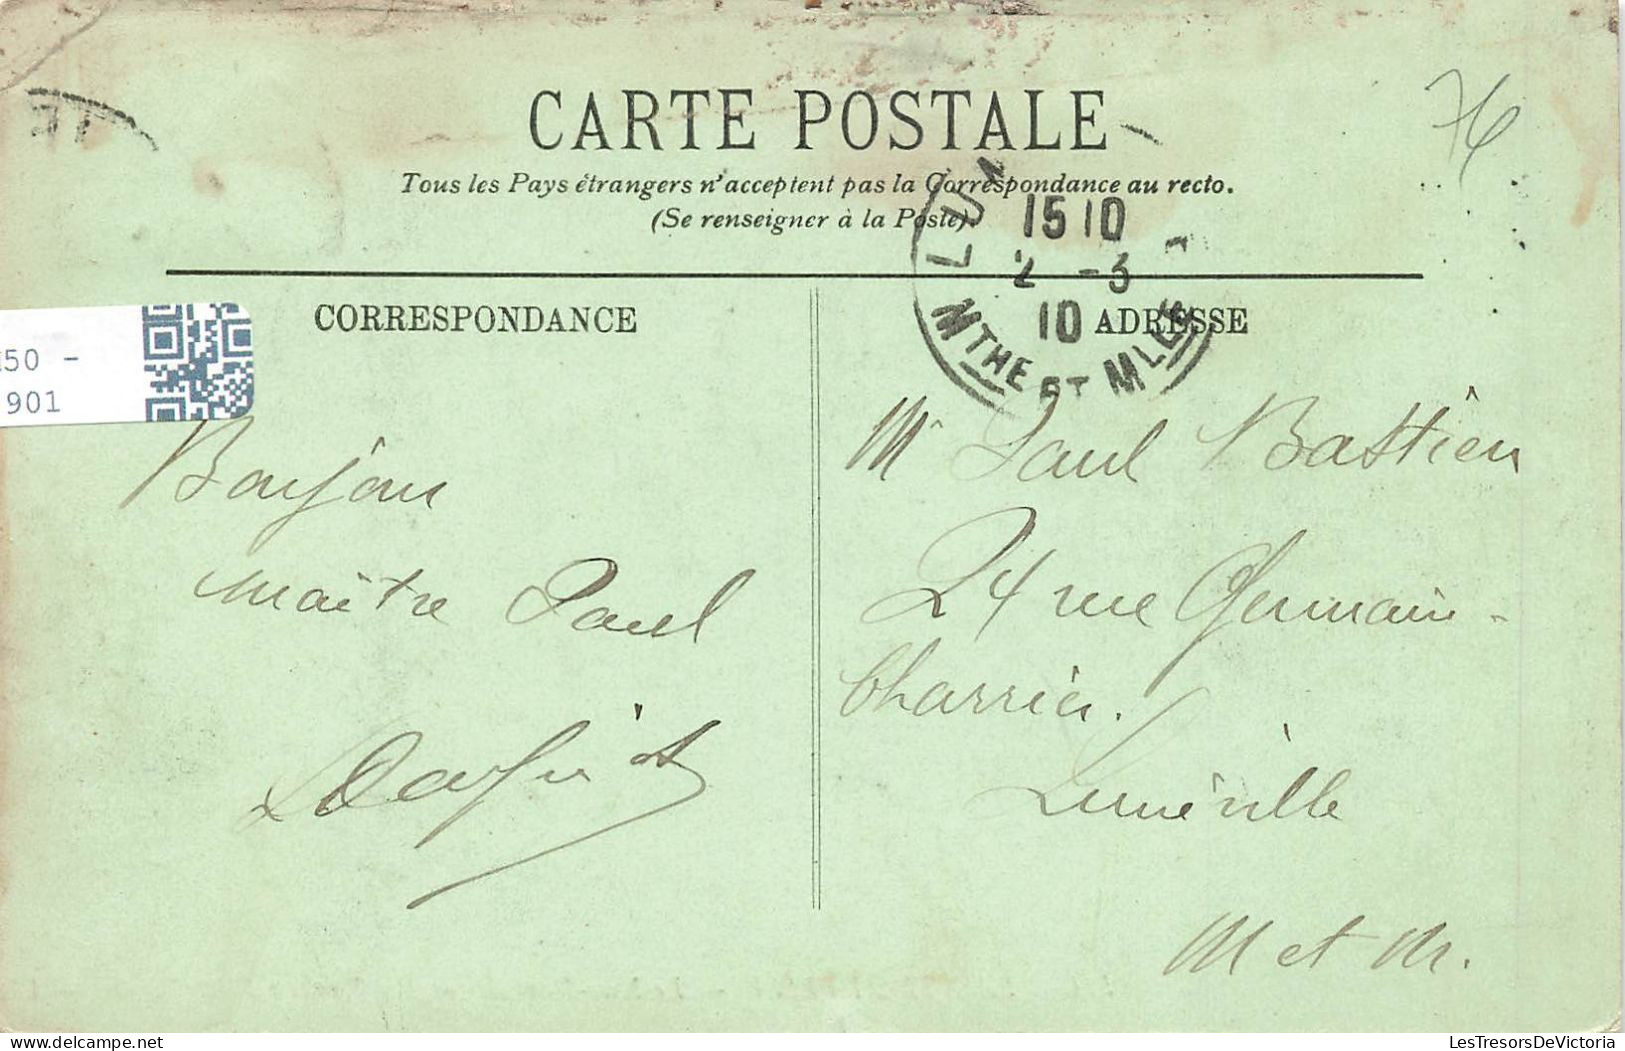 CARTE POSTALE
Tous les Pays étrangers n'acceptent pas la Correspondance au recto.
(Se renseigner à la Poste).
76
LUN
15 10
2 -3
10
MTHE ET MLLE
CORRESPONDANCE
ADRESSE
50 -
901
Bonjour
maître Paul
Mr Paul Bastien
24 rue Germain-
Charrier.
Lunéville
M et M.
LesTresorsDeVictoria